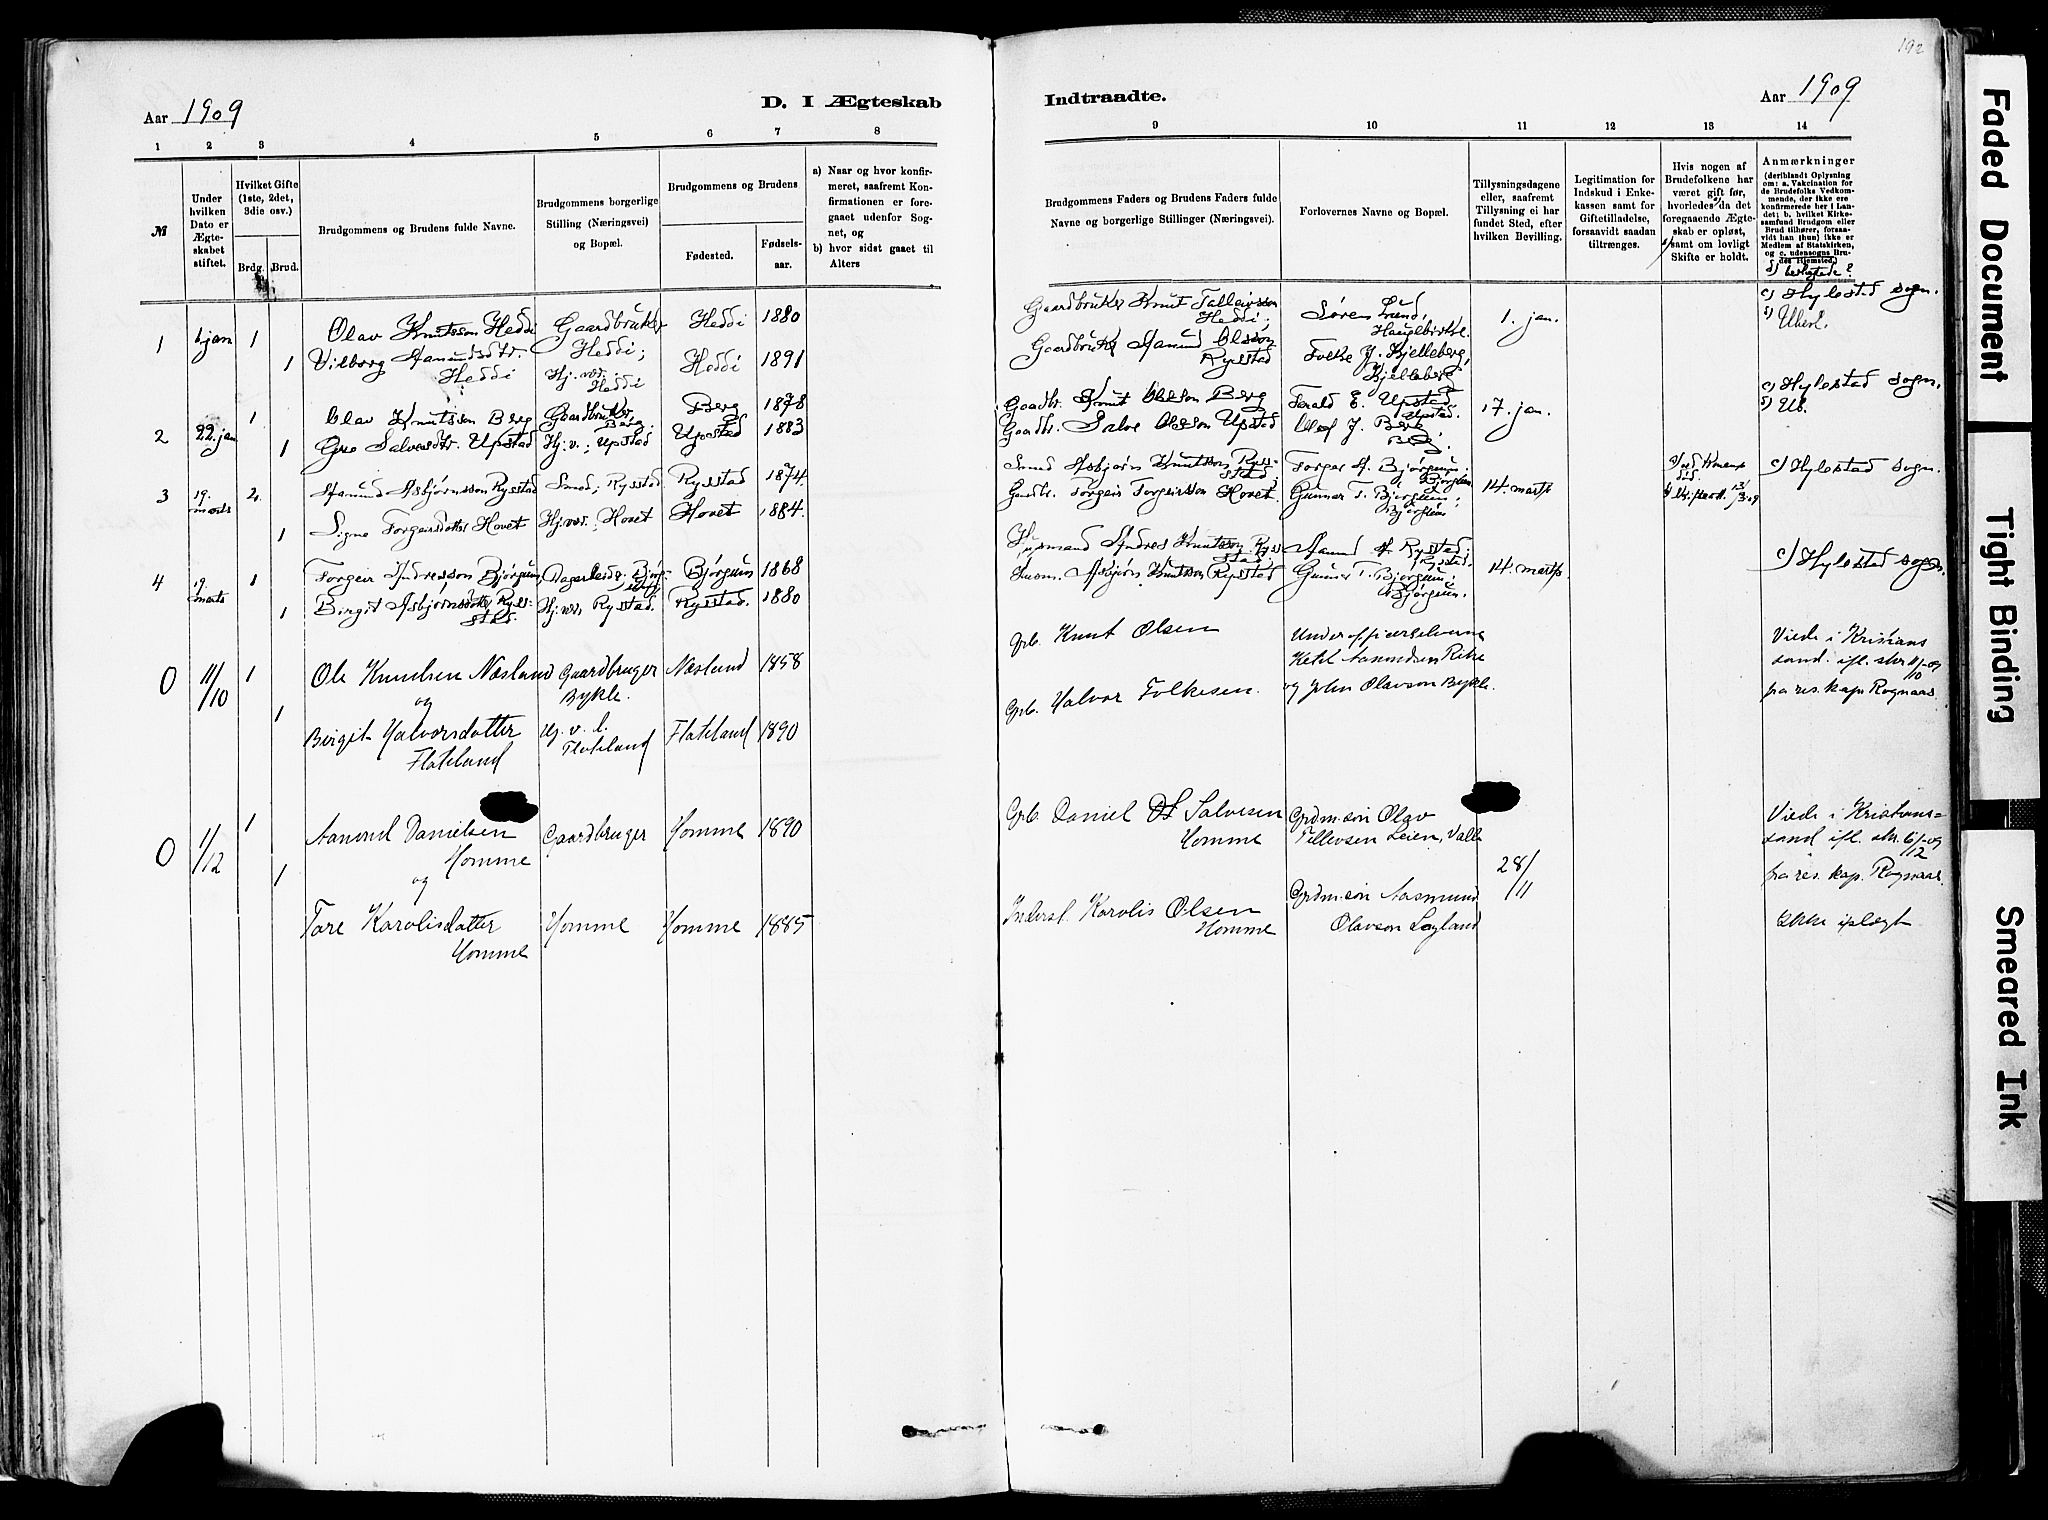 192
Aar 1909
D. I Ægteskab
Indtraadte.
Aar 1909
1 2 3 4 5 6 7 8
9 10 11 12 13 14
№
Under hvilken Dato er Ægteskabet stiftet.
Hvilket Gifte (1ste, 2det, 3die osv.)
Brdg. Brud.
Brudgommens og Brudens fulde Navne.
Brudgommens borgerlige Stilling (Næringsvei) og Bopæl.
Brudgommens og Brudens
Fødested.
Fødselsaar.
a) Naar og hvor konfirmeret, saafremt Konfirmationen er foregaaet udenfor Sognet, og
b) hvor sidst gaaet til Alters
Brudgommens Faders og Brudens Faders fulde Navne og borgerlige Stillinger (Næringsvei).
Forlovernes Navne og Bopæl.
Tillysningsdagene eller, saafremt Tillysning ei har fundet Sted, efter hvilken Bevilling.
Legitimation for Indskud i Enkekassen samt for Giftetilladelse, forsaavidt saadan tiltrænges.
Hvis nogen af Brudefolkene har været gift før, hvorledes da det foregaaende Ægteskab er opløst, samt om lovligt Skifte er holdt.
Anmærkninger
(deriblandt Oplysning om: a. Vakcination for de Brudefolks Vedkommende, der ikke ere konfirmerede her i Landet; b. hvilket Kirkesamfund Brudgom eller Brud tilhører, forsaavidt han (hun) ikke er Medlem af Statskirken, og c. udensogns Brudes Hjemsted.)
1 jan 1 Olav Knutsson Heddi Gaardbruker Heddi; Heddi 1880
1 Vilborg Aamundsdtr. Heddi Hj. vær. Heddi Heddi 1891
Gaardbruker Knut Talleivsson Heddi;
Gaardbruker Aamund Olsson Rysstad
Søren Lund,
Folke J. Kjelleberg, Kjelleberg
1. jan.
c) Hylestad sogn.
2 22. jan 1 Olav Knutsson Berg Gaardbruker, Berg Berg 1878
1 Salvesdtr. Upstad Hj. v.; Upstad Upstad 1883
Gaardbr. Knut Olsson Berg
Gaardbr. Salve Olsson Upstad
E. Upstad Upstad.
Olaf J. Berg Berg.
17. jan.
c) Hylestad sogn.
3 19. marts 2. Aamund Asbjørnsson Rysstad Smed; Rysstad Rysstad 1874.
1 Signe Torgeirsdotter Hovet Hj. vær.; Hovet Hovet 1884.
Smed Asbjørn Knutsson Rysstad;
Gaardbr. Torgeir Torgeirsson Hovet.
Torger A. Bjørgum; Bjørgum
Gunnar T. Bjørgum; Bjørgum
14. marts
c) Hylestad sogn.
4 19. marts 1 Torgeir Andresson Bjørgum, Dagarbeider; Bjørgum Bjørgum 1868
1 Birgit Asbjørnsdotter Rysstad. Hj. vær, Rysstad. Rysstad. 1880
Husmand Andres Knutsson Rysstad;
Husm. Asbjørn Knutsson Rysstad
Aamund A. Rysstad; Rysstad.
Gunnar T. Bjørgum; Bjørgum.
14. marts.
c) Hylestad sogn.
0 11/10 1 Ole Knudsen Næsland Gaardbruger Bykle. Næsland 1858
og
1 Birgit Halvorsdatter Flateland Hj. v. l. Flateland Flateland 1890
Grb. Knut Olsen
Grb. Halvor Folkesen.
Underofficerselverne
Ketil Aamundsen Rike
og John Olavson Bykle.
Viede i Kristians
sand. ifl. skr. 11/10-09
fra res. kap. Rognaas.
0 1/12 1 Aanund Danielsen Homme Gaardbruger Homme 1890
og
1 Tore Karolisdatter Homme Homme Homme 1885
Grb. Daniel Salvesen Homme
Inderst. Karolis Olsen Homme
Grdm.søn Olav
Tellevsen Leien, Valle
Grdm.søn Aasmund
Olavson Løyland
28/11
Viede i Kristians=
sand ifl. skr. 6/12-09
fra res. kap. Rognaas.
Ikke iplagt
Faded Document
Tight Binding
Smeared Ink